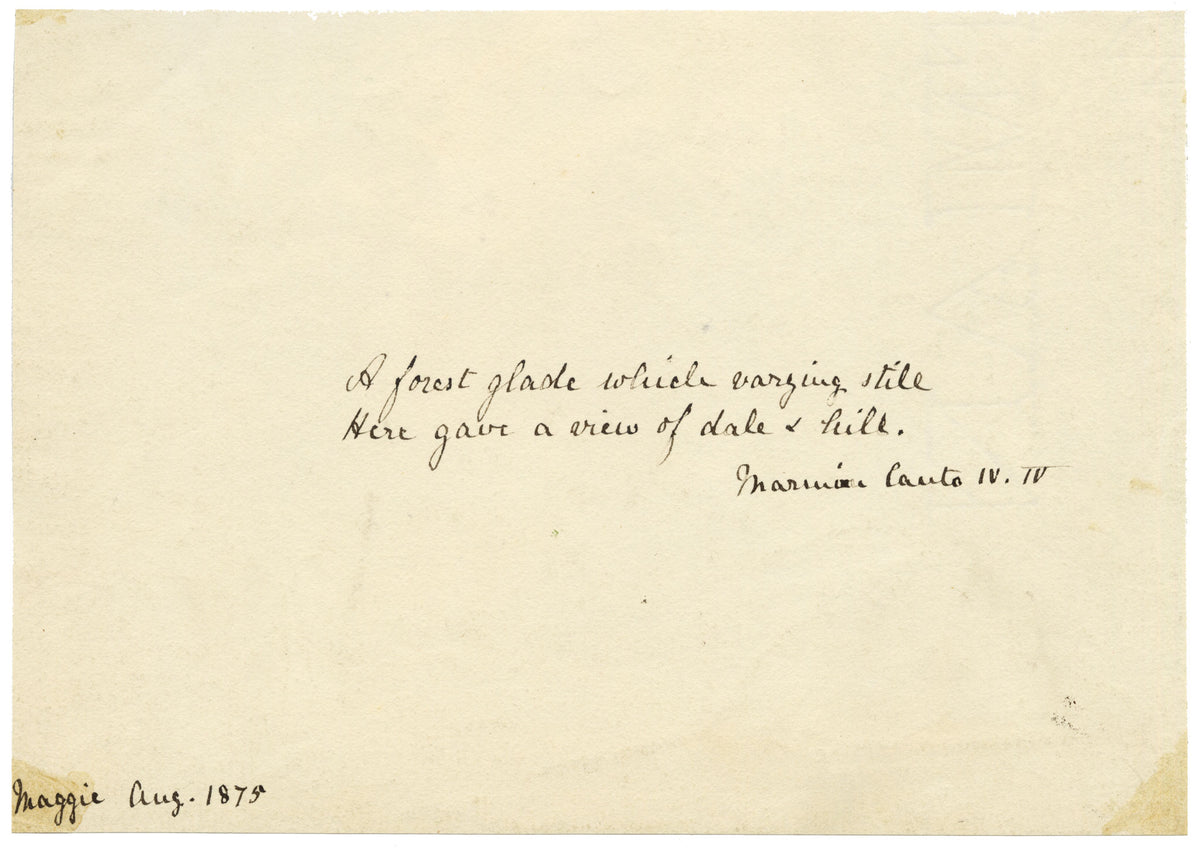 A forest glade which varying still
Here gave a view of dale & hill.
Marmion Canto IV. IV
Maggie Aug. 1875